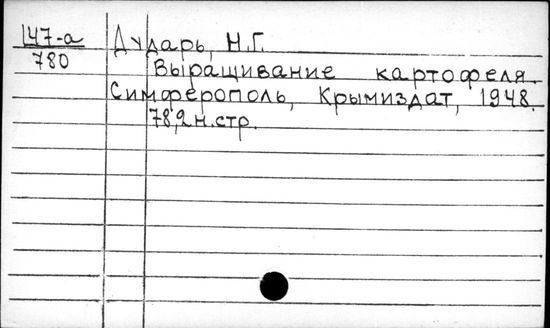 147-а
780
Дударь, Н.Г.
Выращивание картофеля.
Симферополь, Крымиздат, 1948.
78,2 н.стр.